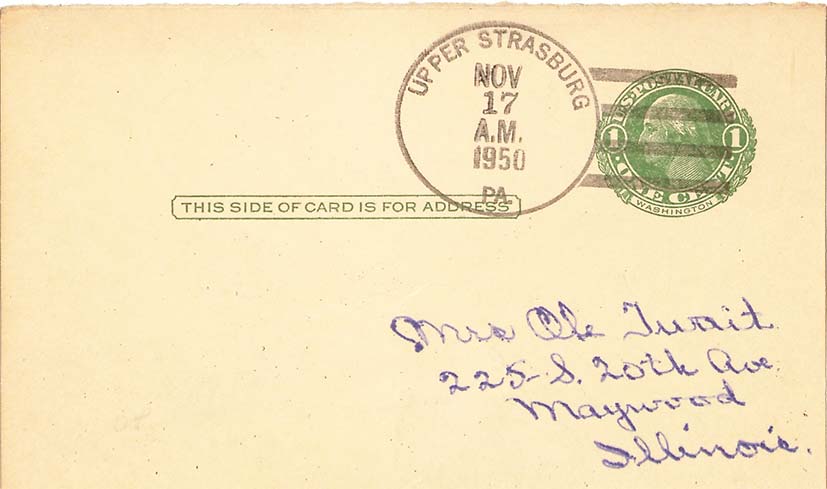 UPPER STRASBURG
NOV
17
A.M.
1950
PA.
U.S. POSTAL CARD
1 1
ONE CENT
WASHINGTON
THIS SIDE OF CARD IS FOR ADDRESS
Mrs Ole Twait
225 S. 20th Ave.
Maywood
Illinois.